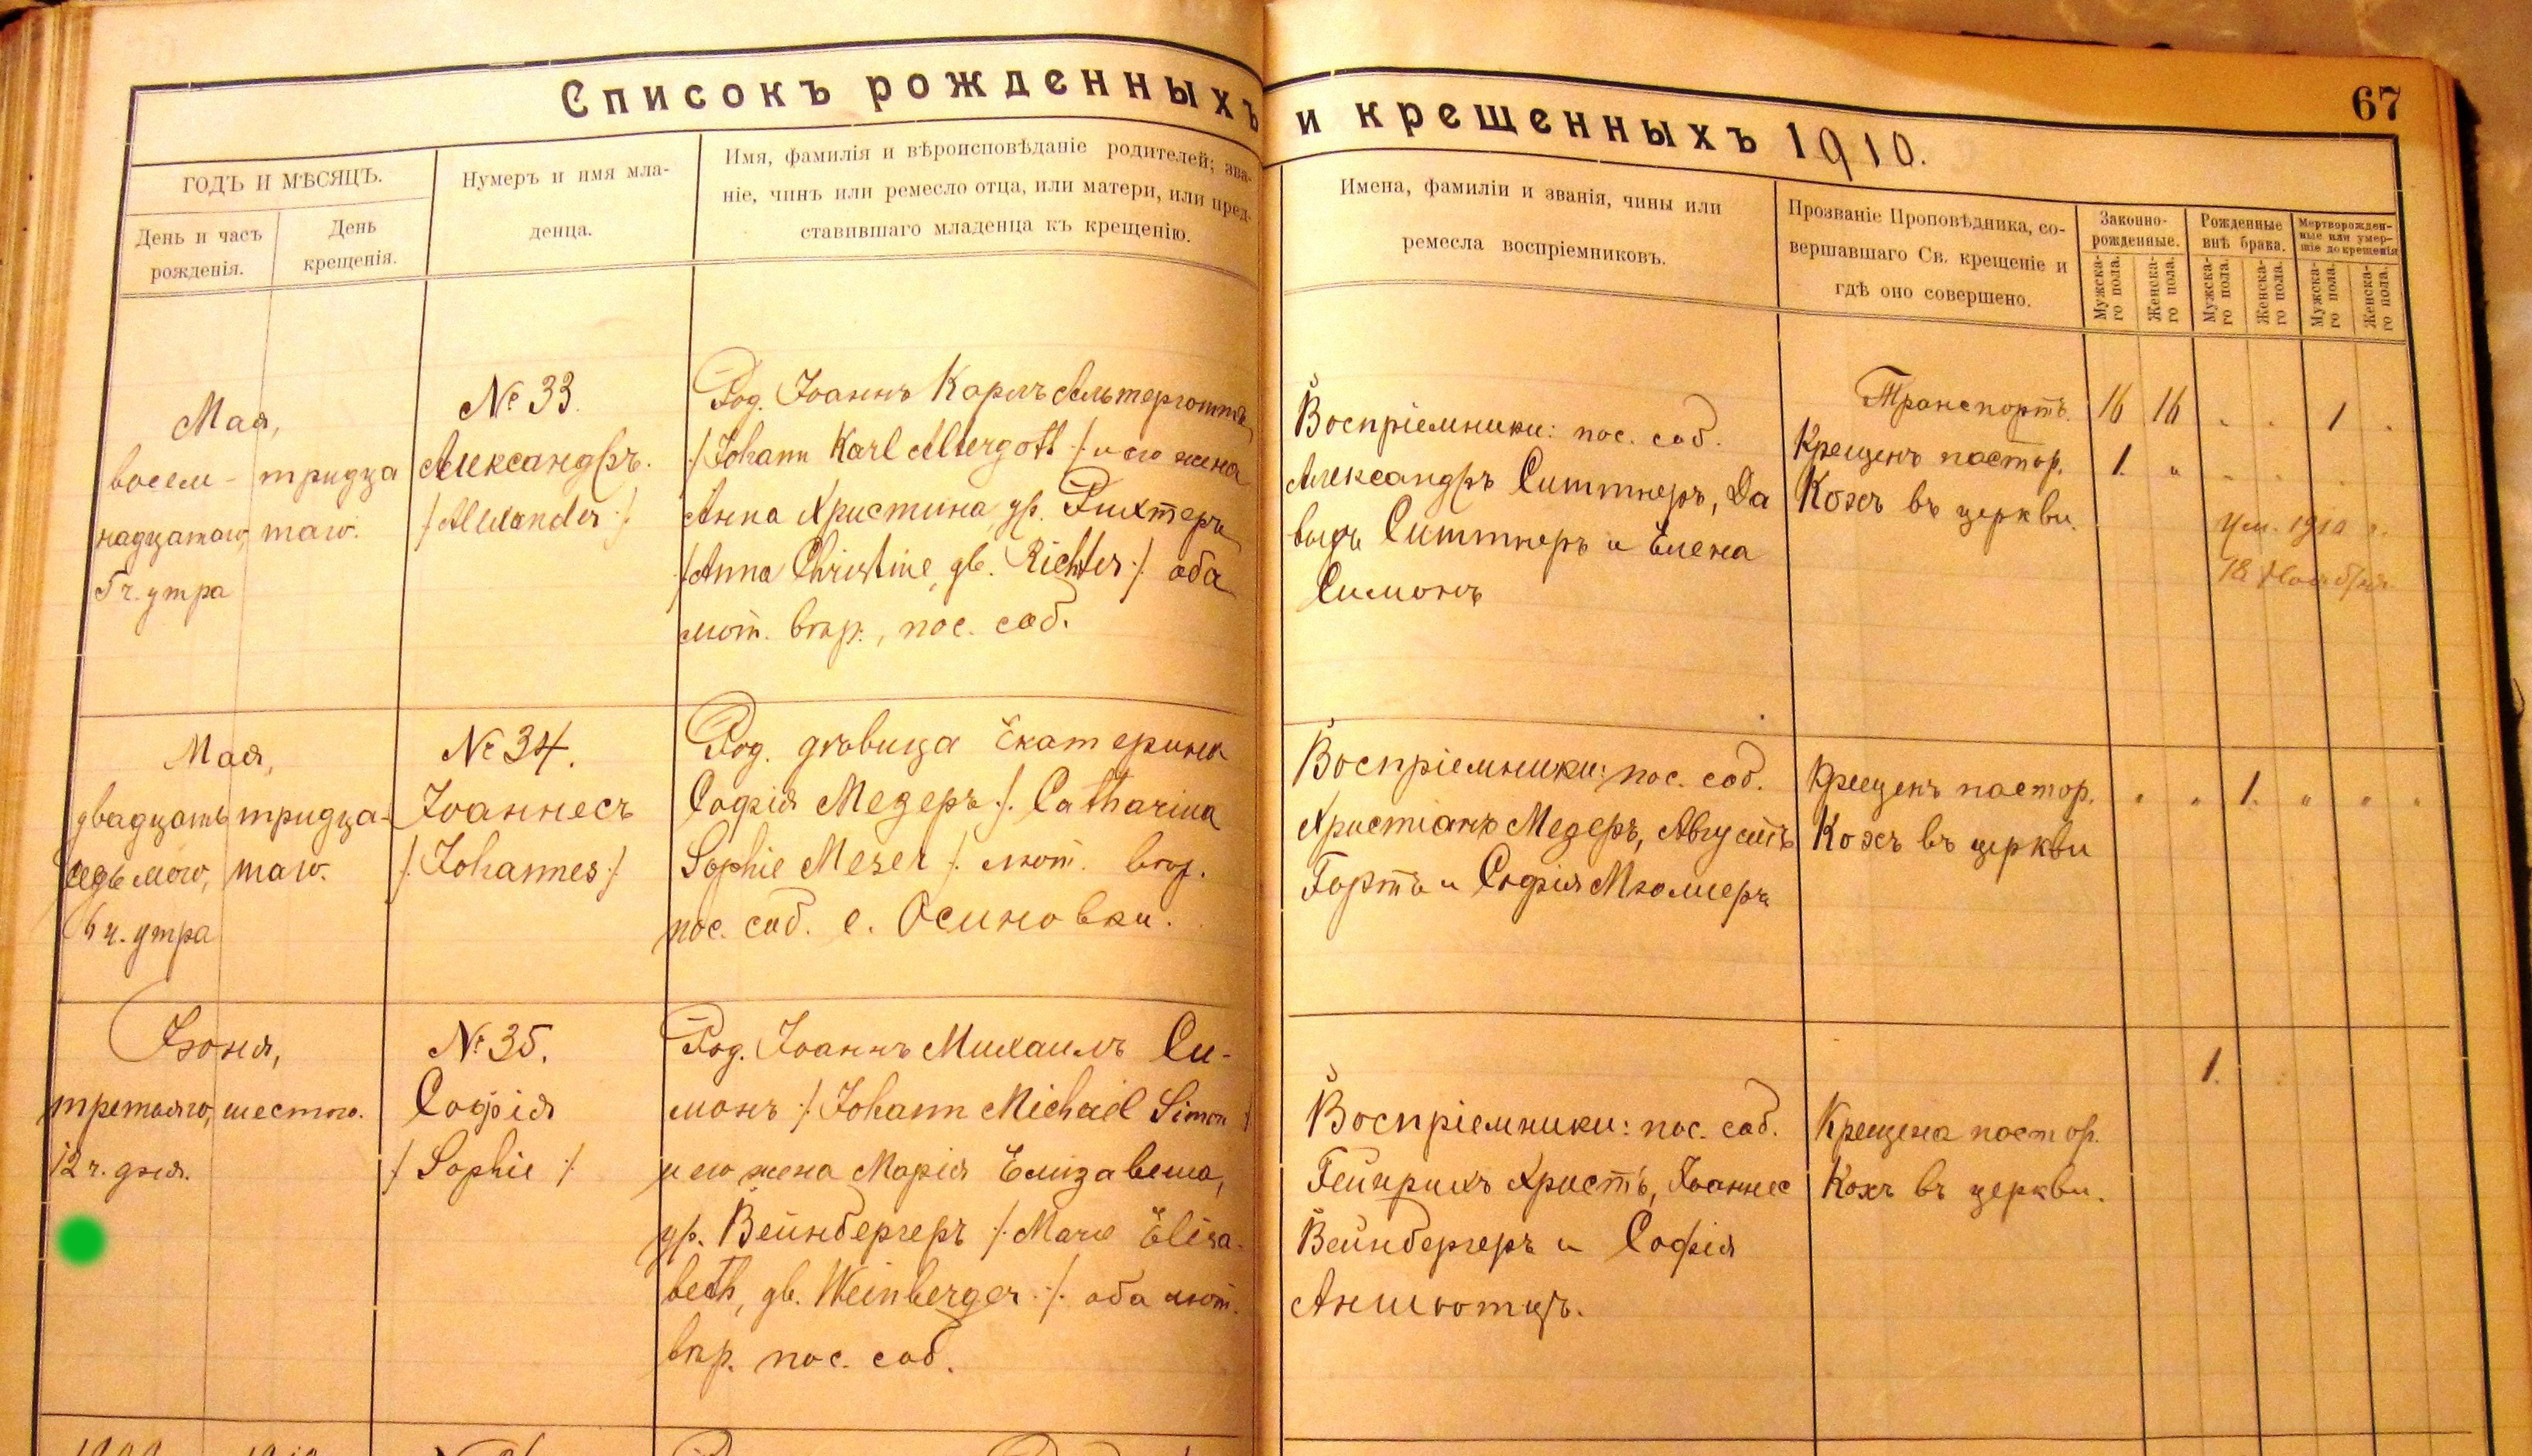 Списокъ рожденныхъ и крещенныхъ 1910.
67
ГОДЪ И МѢСЯЦЪ.
День и часъ
рожденія.
День
крещенія.
Нумеръ и имя мла-
денца.
Имя, фамилія и вѣроисповѣданіе родителей; зва-
ніе, чинъ или ремесло отца, или матери, или пред-
ставившаго младенца къ крещенію.
Имена, фамиліи и званія, чины или
ремесла воспріемниковъ.
Прозваніе Проповѣдника, со-
вершавшаго Св. крещеніе и
гдѣ оно совершено.
Законно-
рожденные.
Рожденные
внѣ брака.
Мертворожден-
ные или умер-
шіе до крещенія
Мужска-
го пола.
Женска-
го пола.
Мужска-
го пола.
Женска-
го пола.
Мужска-
го пола.
Женска-
го пола.
Мая,
восем-
надцатаго,
5 ч. утра
тридца
таго.
№ 33.
Александръ.
/Alexander/
Род. Іоаннъ Карлъ Альтерготтъ
/Johann Karl Altergott/ и его жена
Анна Христина, ур. Рихтеръ
/Anna Christine, gb. Richter/ оба
лют. вѣр., пос. соб.
Воспріемники: пос. соб.
Александръ Ситтнеръ, Да
выдъ Ситтнеръ и Елена
Симонъ
Транспортъ. 16 16 . . 1 .
Крещенъ пастор. 1. "
Кохъ въ церкви.
Ум. 1910 г.
18 Ноября
Мая,
двадцать
седьмого,
6 ч. утра
тридца-
таго.
№ 34.
Іоаннесъ
/Johannes/
Род. дѣвица Екатерина
Софія Мезеръ /. Catharina
Sophie Meser / лют. вѣр.
пос. соб. с. Осиновки.
Воспріемники: пос. соб.
Христіанъ Мезеръ, Августъ
Гортъ и Софія Мюллеръ
Крещенъ пастор. " " 1. " " "
Кохъ въ церкви
Іюня,
третьяго,
12 ч. дня.
шестого.
№ 35.
Софія
/ Sophie /
Род. Іоаннъ Михаилъ Си-
монъ / Johann Michael Simon /
и его жена Марія Елизавета,
ур. Вейнбергеръ / Marie Elisa-
beth, gb. Weinberger / оба лют.
вѣр. пос. соб.
Воспріемники: пос. соб.
Гейнрихъ Христъ, Іоаннес
Вейнбергеръ и Софія
Аншютцъ.
1.
Крещена пастор.
Кохъ въ церкви.